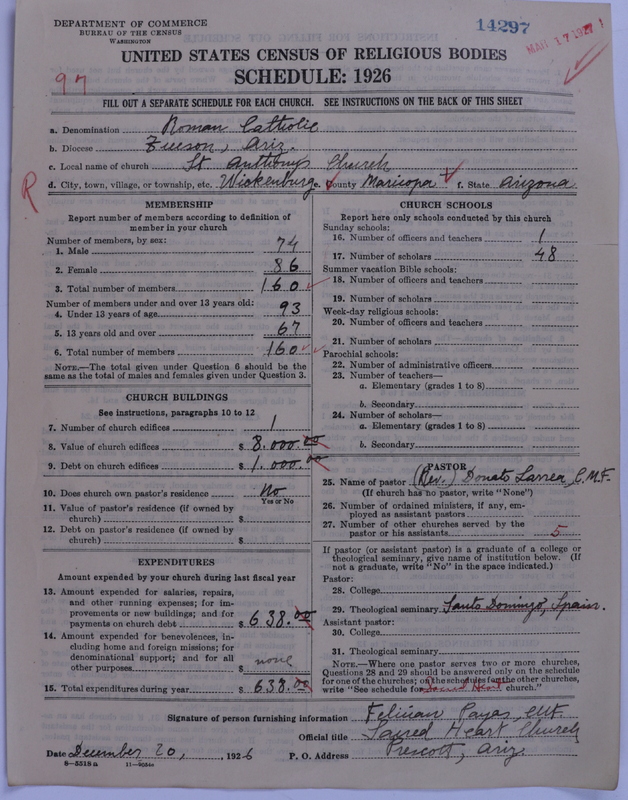 DEPARTMENT OF COMMERCE
BUREAU OF THE CENSUS
WASHINGTON
14297
MAR 17 1927
UNITED STATES CENSUS OF RELIGIOUS BODIES
SCHEDULE: 1926
97
FILL OUT A SEPARATE SCHEDULE FOR EACH CHURCH. SEE INSTRUCTIONS ON THE BACK OF THIS SHEET
a. Denomination Roman Catholic
b. Diocese Tucson, Ariz.
c. Local name of church St Anthonys Church
d. City, town, village, or township, etc. Wickenburg e. County Maricopa f. State Arizona
R
MEMBERSHIP
Report number of members according to definition of
member in your church
Number of members, by sex:
1. Male 74
2. Female 86
3. Total number of members 160
Number of members under and over 13 years old:
4. Under 13 years of age 93
5. 13 years old and over 67
6. Total number of members 160
NOTE.—The total given under Question 6 should be
same as the total of males and females given under Question 3.
CHURCH BUILDINGS
See instructions, paragraphs 10 to 12
7. Number of church edifices 1
8. Value of church edifices $ 8.000.00
9. Debt on church edifices $ 1.000.00
10. Does church own pastor's residence No
Yes or No
11. Value of pastor's residence (if owned by
church) $
12. Debt on pastor's residence (if owned by
church) $
EXPENDITURES
Amount expended by your church during last fiscal year
13. Amount expended for salaries, repairs,
and other running expenses; for im-
provements or new buildings; and for
payments on church debt $ 638.00
14. Amount expended for benevolences, in-
cluding home and foreign missions; for
denominational support; and for all
other purposes $ none
15. Total expenditures during year $ 638.00
CHURCH SCHOOLS
Report here only schools conducted by this church
Sunday schools:
16. Number of officers and teachers 1
17. Number of scholars 48
Summer vacation Bible schools:
18. Number of officers and teachers
19. Number of scholars
Week-day religious schools:
20. Number of officers and teachers
21. Number of scholars
Parochial schools:
22. Number of administrative officers
23. Number of teachers—
a. Elementary (grades 1 to 8)
b. Secondary
24. Number of scholars—
a. Elementary (grades 1 to 8)
b. Secondary
PASTOR
25. Name of pastor (Rev.) Donato Larrea, C.M.F.
(If church has no pastor, write "None")
26. Number of ordained ministers, if any, em-
ployed as assistant pastors
27. Number of other churches served by the
pastor or his assistants 5
If pastor (or assistant pastor) is a graduate of a college or
theological seminary, give name of institution below. (If
not a graduate, write "No" in the space indicated.)
Pastor:
28. College
29. Theological seminary Santo Domingo, Spain.
Assistant pastor:
30. College
31. Theological seminary
NOTE.—Where one pastor serves two or more churches,
Questions 28 and 29 should be answered only on the schedule
for one of the churches; the schedules for the other churches,
write "See schedule for Sacred Heart church."
Signature of person furnishing information Felician Payas, CMF.
Official title Sacred Heart Church
Date December 20, 1926 P. O. Address Prescott, Ariz.
8-5518a